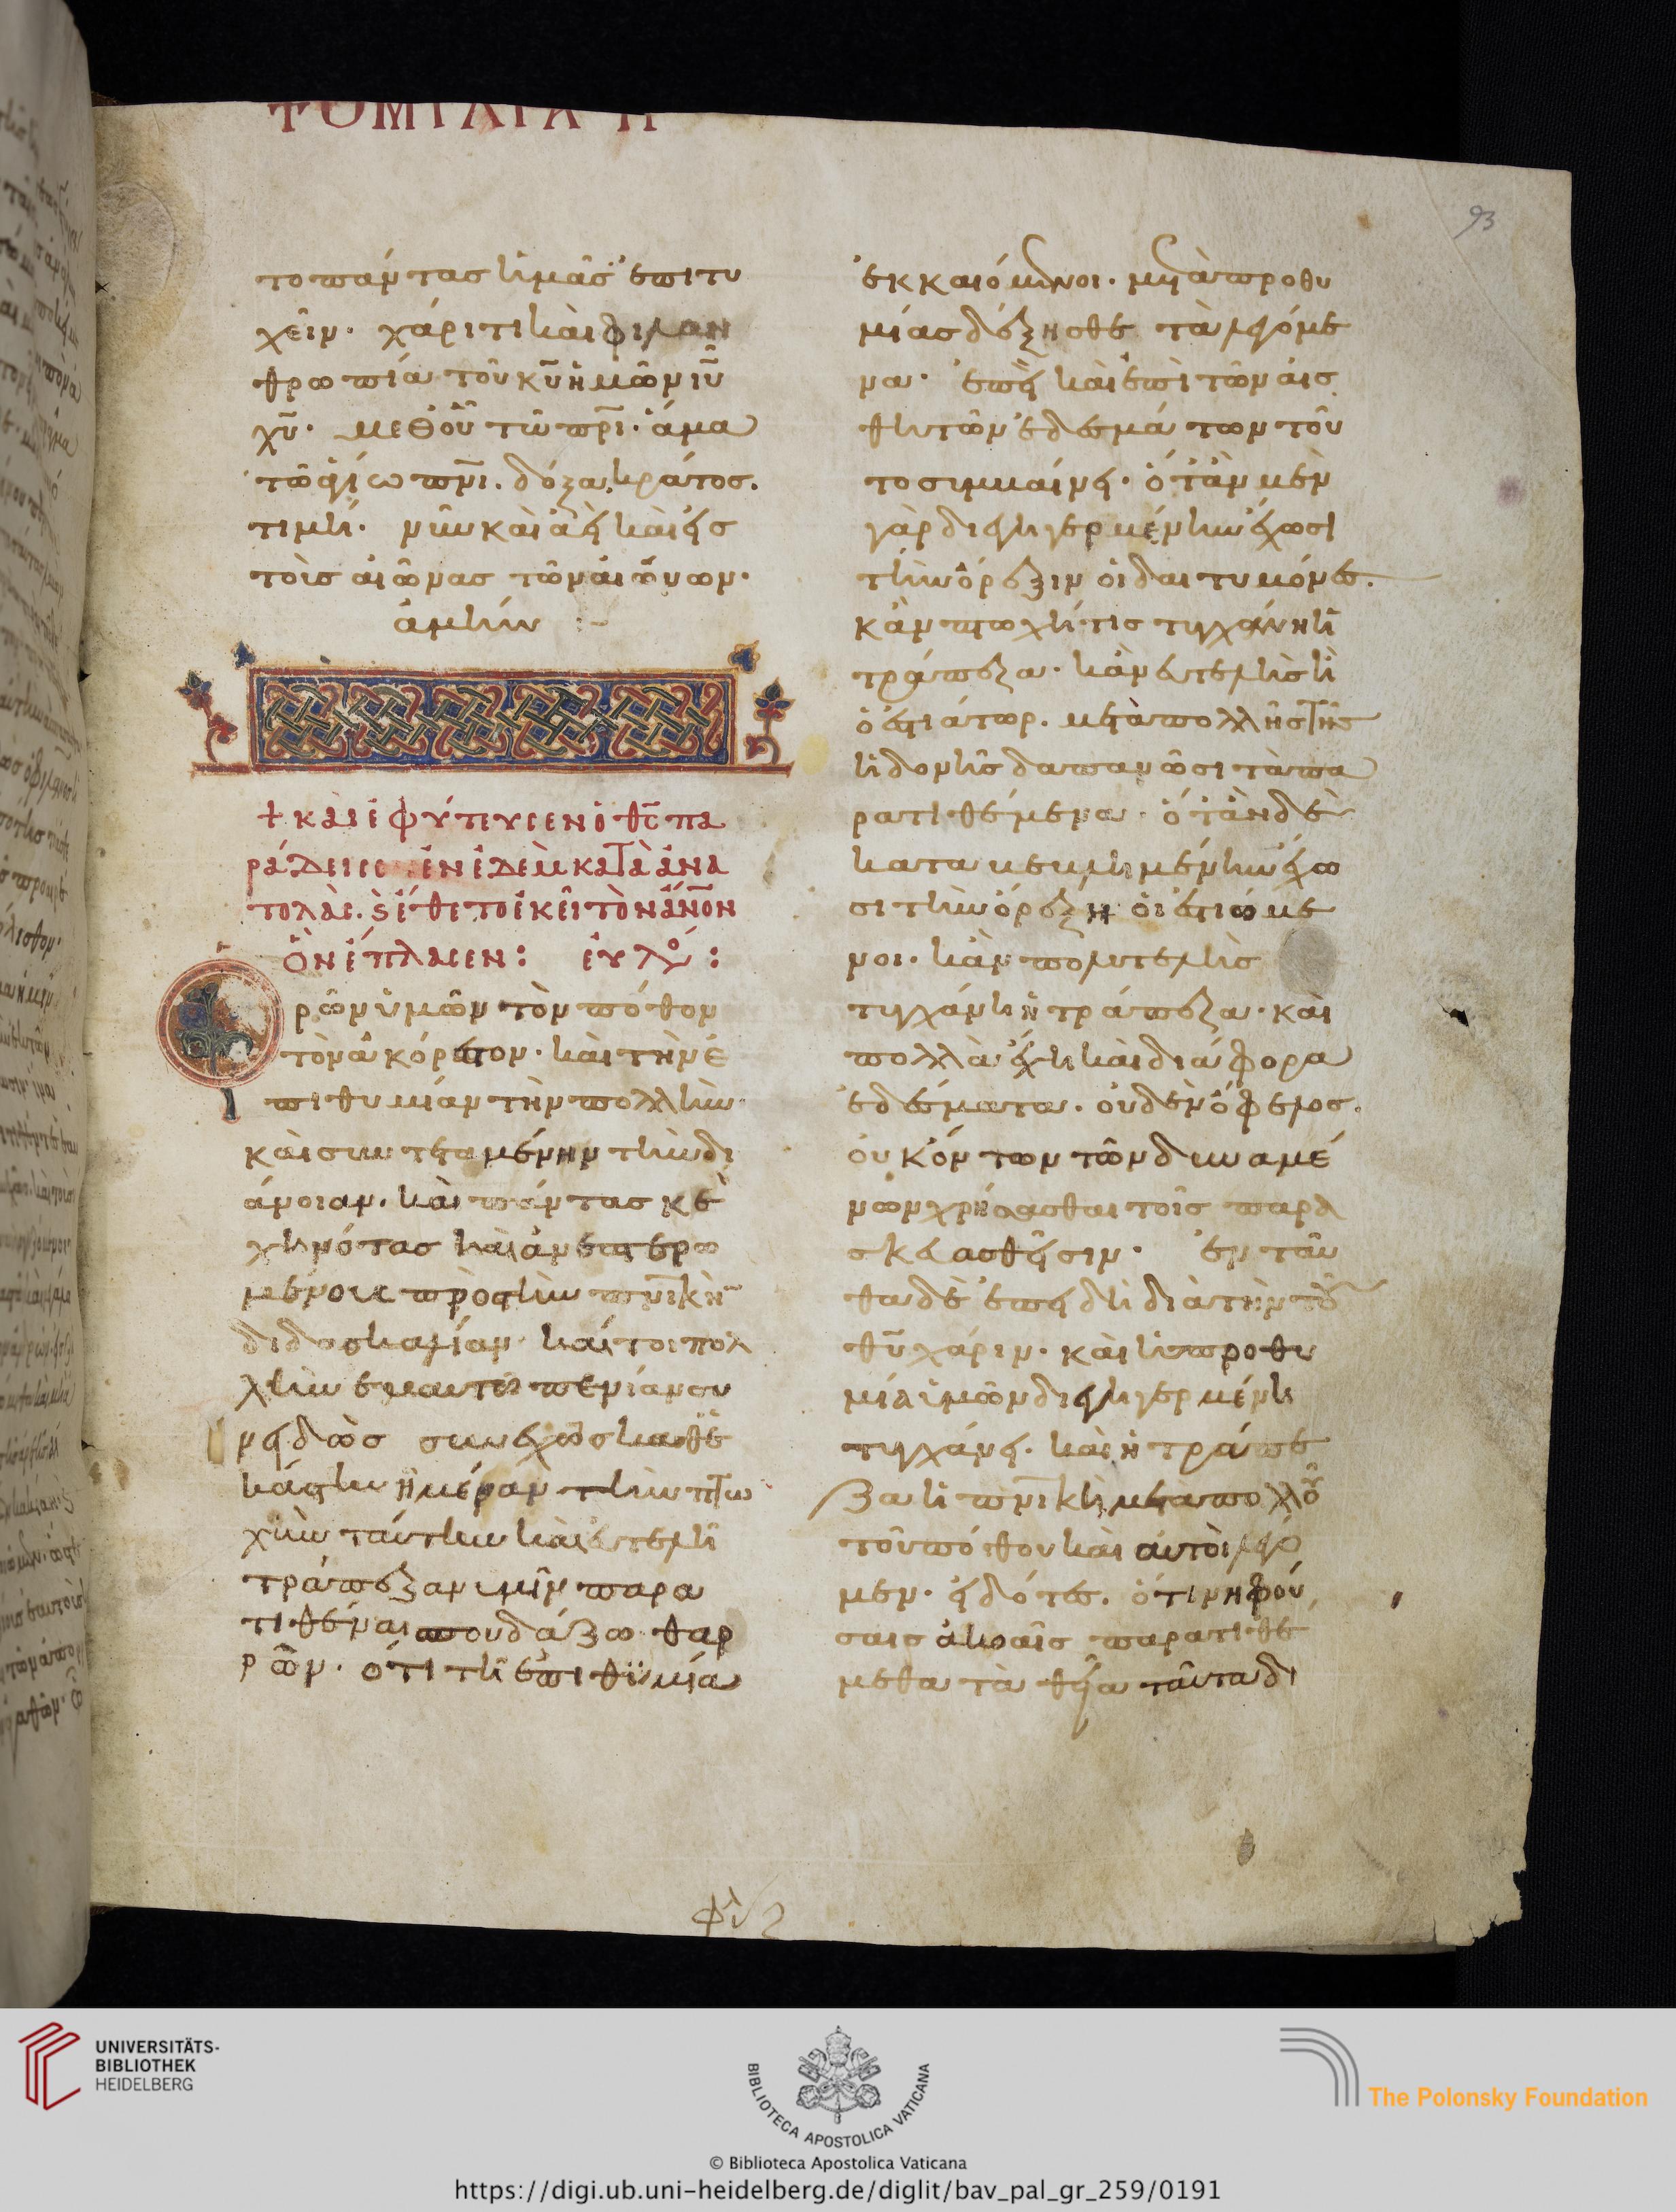 ΟΜΙΛΙΑ ΙΓ
93
το πάντας ἡμᾶς ἐπιτυ
χεῖν· χάριτι καὶ φιλαν
θρωπία τοῦ κῡ ἡμῶν ιῡ
χῡ· μεθ οὗ τῶ πρ̄ι· ἅμα
τῶ ἁγίω πν̄ι. δόξα, κράτος.
τιμή· νῦν καὶ ἀεὶ καὶ εἰς
τοὺς αἰῶνας τῶν αἰώνων·
ἀμήν :~
+ καὶ ἐφύτευσεν ὁ θς̄ πα
ράδεισο ἐν ἐδὲμ κατὰ ἀνα
τολάς. ϗ ἔθετο ἐκεῖ τὸν ἄνο̄ν
ὃν ἔπλασεν : εὐλο :
Ὁρῶν ὑμῶν τὸν πόθον
τὸν ἀκόρεστον· καὶ τὴν ἐ
πιθυμίαν τὴν πολλὴν·
καὶ συντεταμένην τὴν δι
άνοιαν. καὶ πάντας κε
χηνότας καὶ ἀνεπτερω
μένους πρὸς τὴν πν̄ικὴ
διδασκαλίαν· καί τοι πολ
λὴν ἐμαυτῶ πενίαν συ
νειδὼς συνεχῶς καθ ἑ
κάστην ἡμέραν τὴν πτω
χὴν ταύτην καὶ εὐτελῆ
τράπεζαν ὑμῖν παρα
τιθέναι σπουδάζω θαρ
ρῶν· ὅτι τῆ ἐπιθυμία
ἐκκαιόμενοι· μετὰ προθυ
μίας δέξησθε τὰ λεγόμε
να· ἐπεὶ καὶ ἐπὶ τῶν αἰσ
θητῶν ἐδεσμάτων τοῦ
το συμβαίνει· ὅταν μὲν
γὰρ διεγηγερμένην ἔχωσι
τὴν ὄρεξιν οἱ δαιτυμόνες.
κἂν πτωχή τις τυγχάνη ἡ
τράπεζα· κἂν εὐτελὴς ἦ
ὁ ἑστιάτωρ. μετὰ πολλῆς τῆς
ἡδονῆς δαπανῶσι τὰ πα
ρατιθέμενα· ὅταν δὲ
κατα
σι τὴν ὄρεξιν οἱ ἑστιώμε
νοι. κἂν πολυτελὴς
τυγχάνη ἡ τράπεζα· καὶ
πολλὰ ἔχη καὶ διάφορα
ἐδέσματα. οὐδὲν ὄφελος.
οὐκ ὄντων τῶν δυναμέ
νων χρήσασθαι τοῖς παρα
σκευασθεῖσιν· ἐνταῦ
θα δὲ ἐπειδὴ διὰ τὴν τοῦ
θῡ χάριν· καὶ ἡ προθυ
μία ὑμῶν διεγηγερμένη
τυγχάνει· καὶ ἡ τράπε
ζα ἡ πν̄ικὴ μετὰ πολλοῦ
τοῦ πόθου καὶ αὐτοὶ λέγο
μεν· εἰδότες. ὅτι νηφού
σαις ἀκοαῖς παρατιθέ
μεθα τὰ θεῖα ταῦτα δι
UNIVERSITÄTS-
BIBLIOTHEK
HEIDELBERG
BIBLIOTECA APOSTOLICA VATICANA
The Polonsky Foundation
© Biblioteca Apostolica Vaticana
https://digi.ub.uni-heidelberg.de/diglit/bav_pal_gr_259/0191